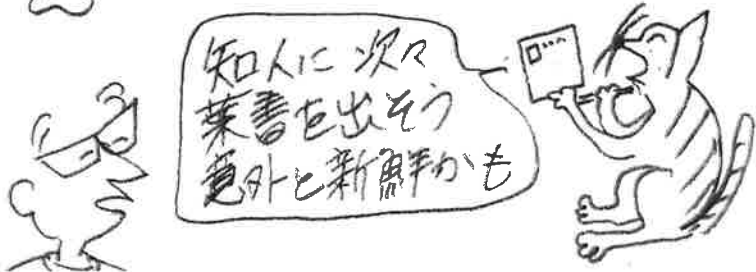 知人に次々
葉書を出そう
意外と新鮮かも